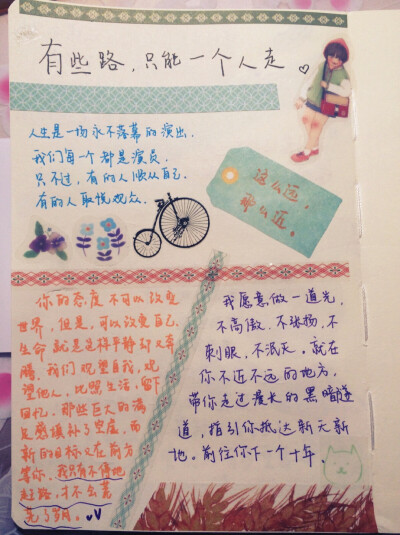 有些路，只能一个人走
人生是一场永不落幕的演出
我们每一个都是演员．
只不过，有的人顺从自己．
有的人取悦观众．
这么远，
那么近。
你的态度不可以改变
世界，但是，可以改变自己．
生命就是这样平静却又奔
腾。我们观望自我，观
望他人，比照生活，留下
回忆。那些巨大的满
足感填补了空虚，而
新的目标又在前方
等你．我只有不停地
赶路，才不么荒
芜了岁月。
我愿意做一道光，
不高傲．不张扬．不
刺眼，不泯灭。就在
你不近不远的地方，
带你走过漫长的黑暗隧
道，指引你抵达新天新
地。前往你下一个十年．